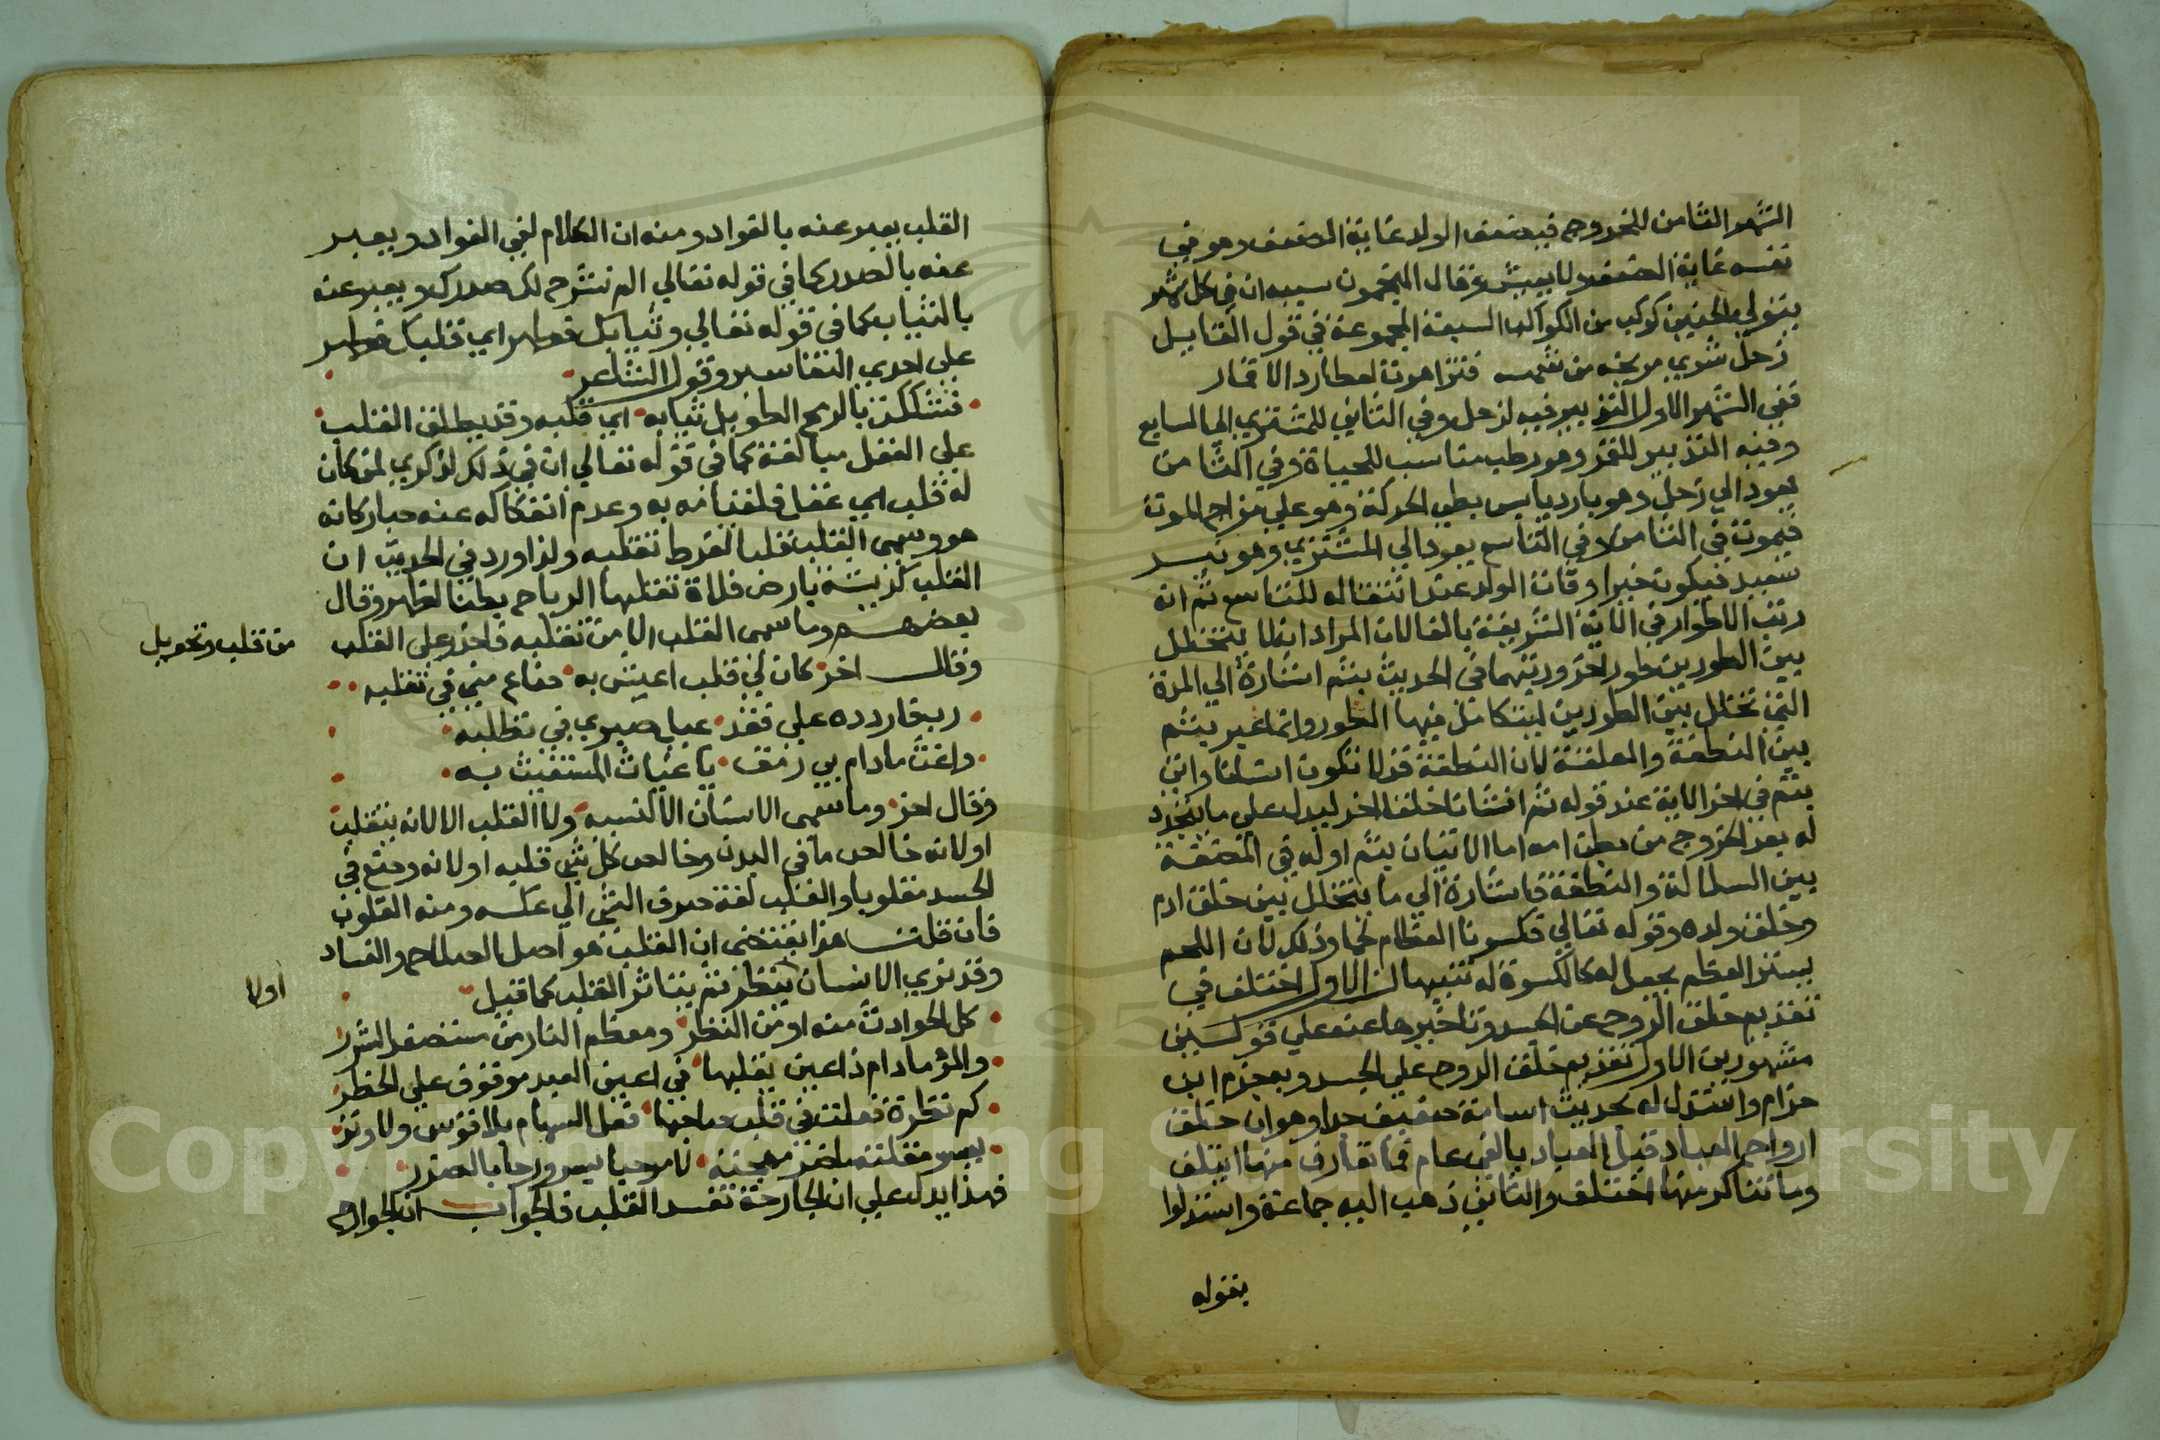 الشهر الثامن للخروج فيضعف الولد غاية الضعف وهو في
نفسه غاية الضعف ولا يعيش وقال المنجمون سببه ان في كل شهر
يتولي الجنين كوكب من الكواكب السبعة المجموعة في قول القايل
زحل شري مريخه من شمسه فتزاهرت لعطارد الاقمار
ففي الشهر الاول التدبير فيه لزحل وفي الثاني للمشتري الي السابع
وفيه التدبير للقمر وهو رطب مناسب للحياة وفي الثامن
يعود الي زحل وهو بارد يابس بطي الحركة وهو علي مزاج الموت
فيموت في الثامن لا في التاسع يعود الي المشتري وهو
سعيد فيكون خيرا وقات الولد عند انتقاله للتاسع ثم انه
رتب الاطوار في الاية الشريفة بالفا لان المراد انها لا يتخلل
بين الطورين طور اخر ورتبها في الحديث بثم اشارة الي المدة
التي تتخلل بين الطورين ليتكامل فيها الطور وانما عبر بثم
بين النطفة والعلقة لان النطفة قد لا تكون انسانا واتي
بثم في اخر الاية عند قوله ثم انشاناه خلقا اخر ليدل علي ما يتجدد
له بعد الخروج من بطن امه اما الاتيان بثم اوله في القصة
بين السلالة والنطفة فاشارة الي ما يتخلل بين خلق ادم
وخلق ولده وقوله تعالي فكسونا العظام لحما وذلك لان اللحم
يستر العظم بجعل له كالكسوة له تنبيهان الاول اختلف في
تقديم خلق الروح عن الجسد وتاخيرها عنه علي قولين
مشهورين الاول تقديم خلق الروح علي الجسد وبه جزم ابن
حزام واستدل له بحديث اسامة ضعيف جدا وهو ان خلق
ارواح العباد قبل العباد بالفي عام فما تعارف منها ائتلف
وما تناكر منها اختلف والثاني ذهب اليه جماعة واستدلوا
بقوله
القلب يعبر عنه بالفواد ومنه ان الكلام لفي الفواد ويعبر
عنه بالصدر كما في قوله تعالي الم نشرح لك صدرك ويعبر عنه
بالثياب كما في قوله تعالي وثيابك فطهر اي قلبك فطهر
علي احدي التفاسير وقول الشاعر
فشككت بالرمح الطويل ثيابه اي قلبه وقد يطلق القلب
علي العقل مبالغة كما في قوله تعالي ان في ذلك لذكري لمن كان
له قلب اي عقل فلقيامه به وعدم انفكاكه عنه صار كانه
هو وسمي القلب قلبا لفرط تقلبه ولذا ورد في الحديث ان
القلب كريشة بارض فلاة تقلبها الرياح بطنا لظهر وقال
بعضهم وما سمي القلب الا من تقلبه فاحذر علي القلب
من قلب وتحويل
وقال اخر كان لي قلب اعيش به ضاع مني في تقلبه
رب فاردده علي فقد عيل صبري في تطلبه
واغث مادام بي رمق يا غياث المستغيث به
وقال اخر وما سمي الانسان الا لنسيه ولا القلب الا لانه يتقلب
او لانه خالص ما في البدن وخالص كل شي قلبه او لانه وضع في
الجسد مقلوبا والقلب لغة صرف الشي الي عكسه ومنه القلوب
فان قلت هذا يقتضي ان القلب هو اصل الصلاح والفساد
وقد نري الانسان ينظر ثم يتاثر القلب كما قيل
اولا
كل الحوادث منه او من النظر ومعظم النار من مستصغر الشرر
والمرء مادام ذا عين يقلبها في اعين العيد موقوف علي الخطر
كم نظرة فعلت في قلب صاحبها فعل السهام بلا قوس ولا وتر
يسر مقلته ماضر مهجته لا مرحبا بسرور جا بالضرر
فهذا يدل علي ان الجارحة تفسد القلب فالجواب ان الجوارح
Copyright © King Saud University